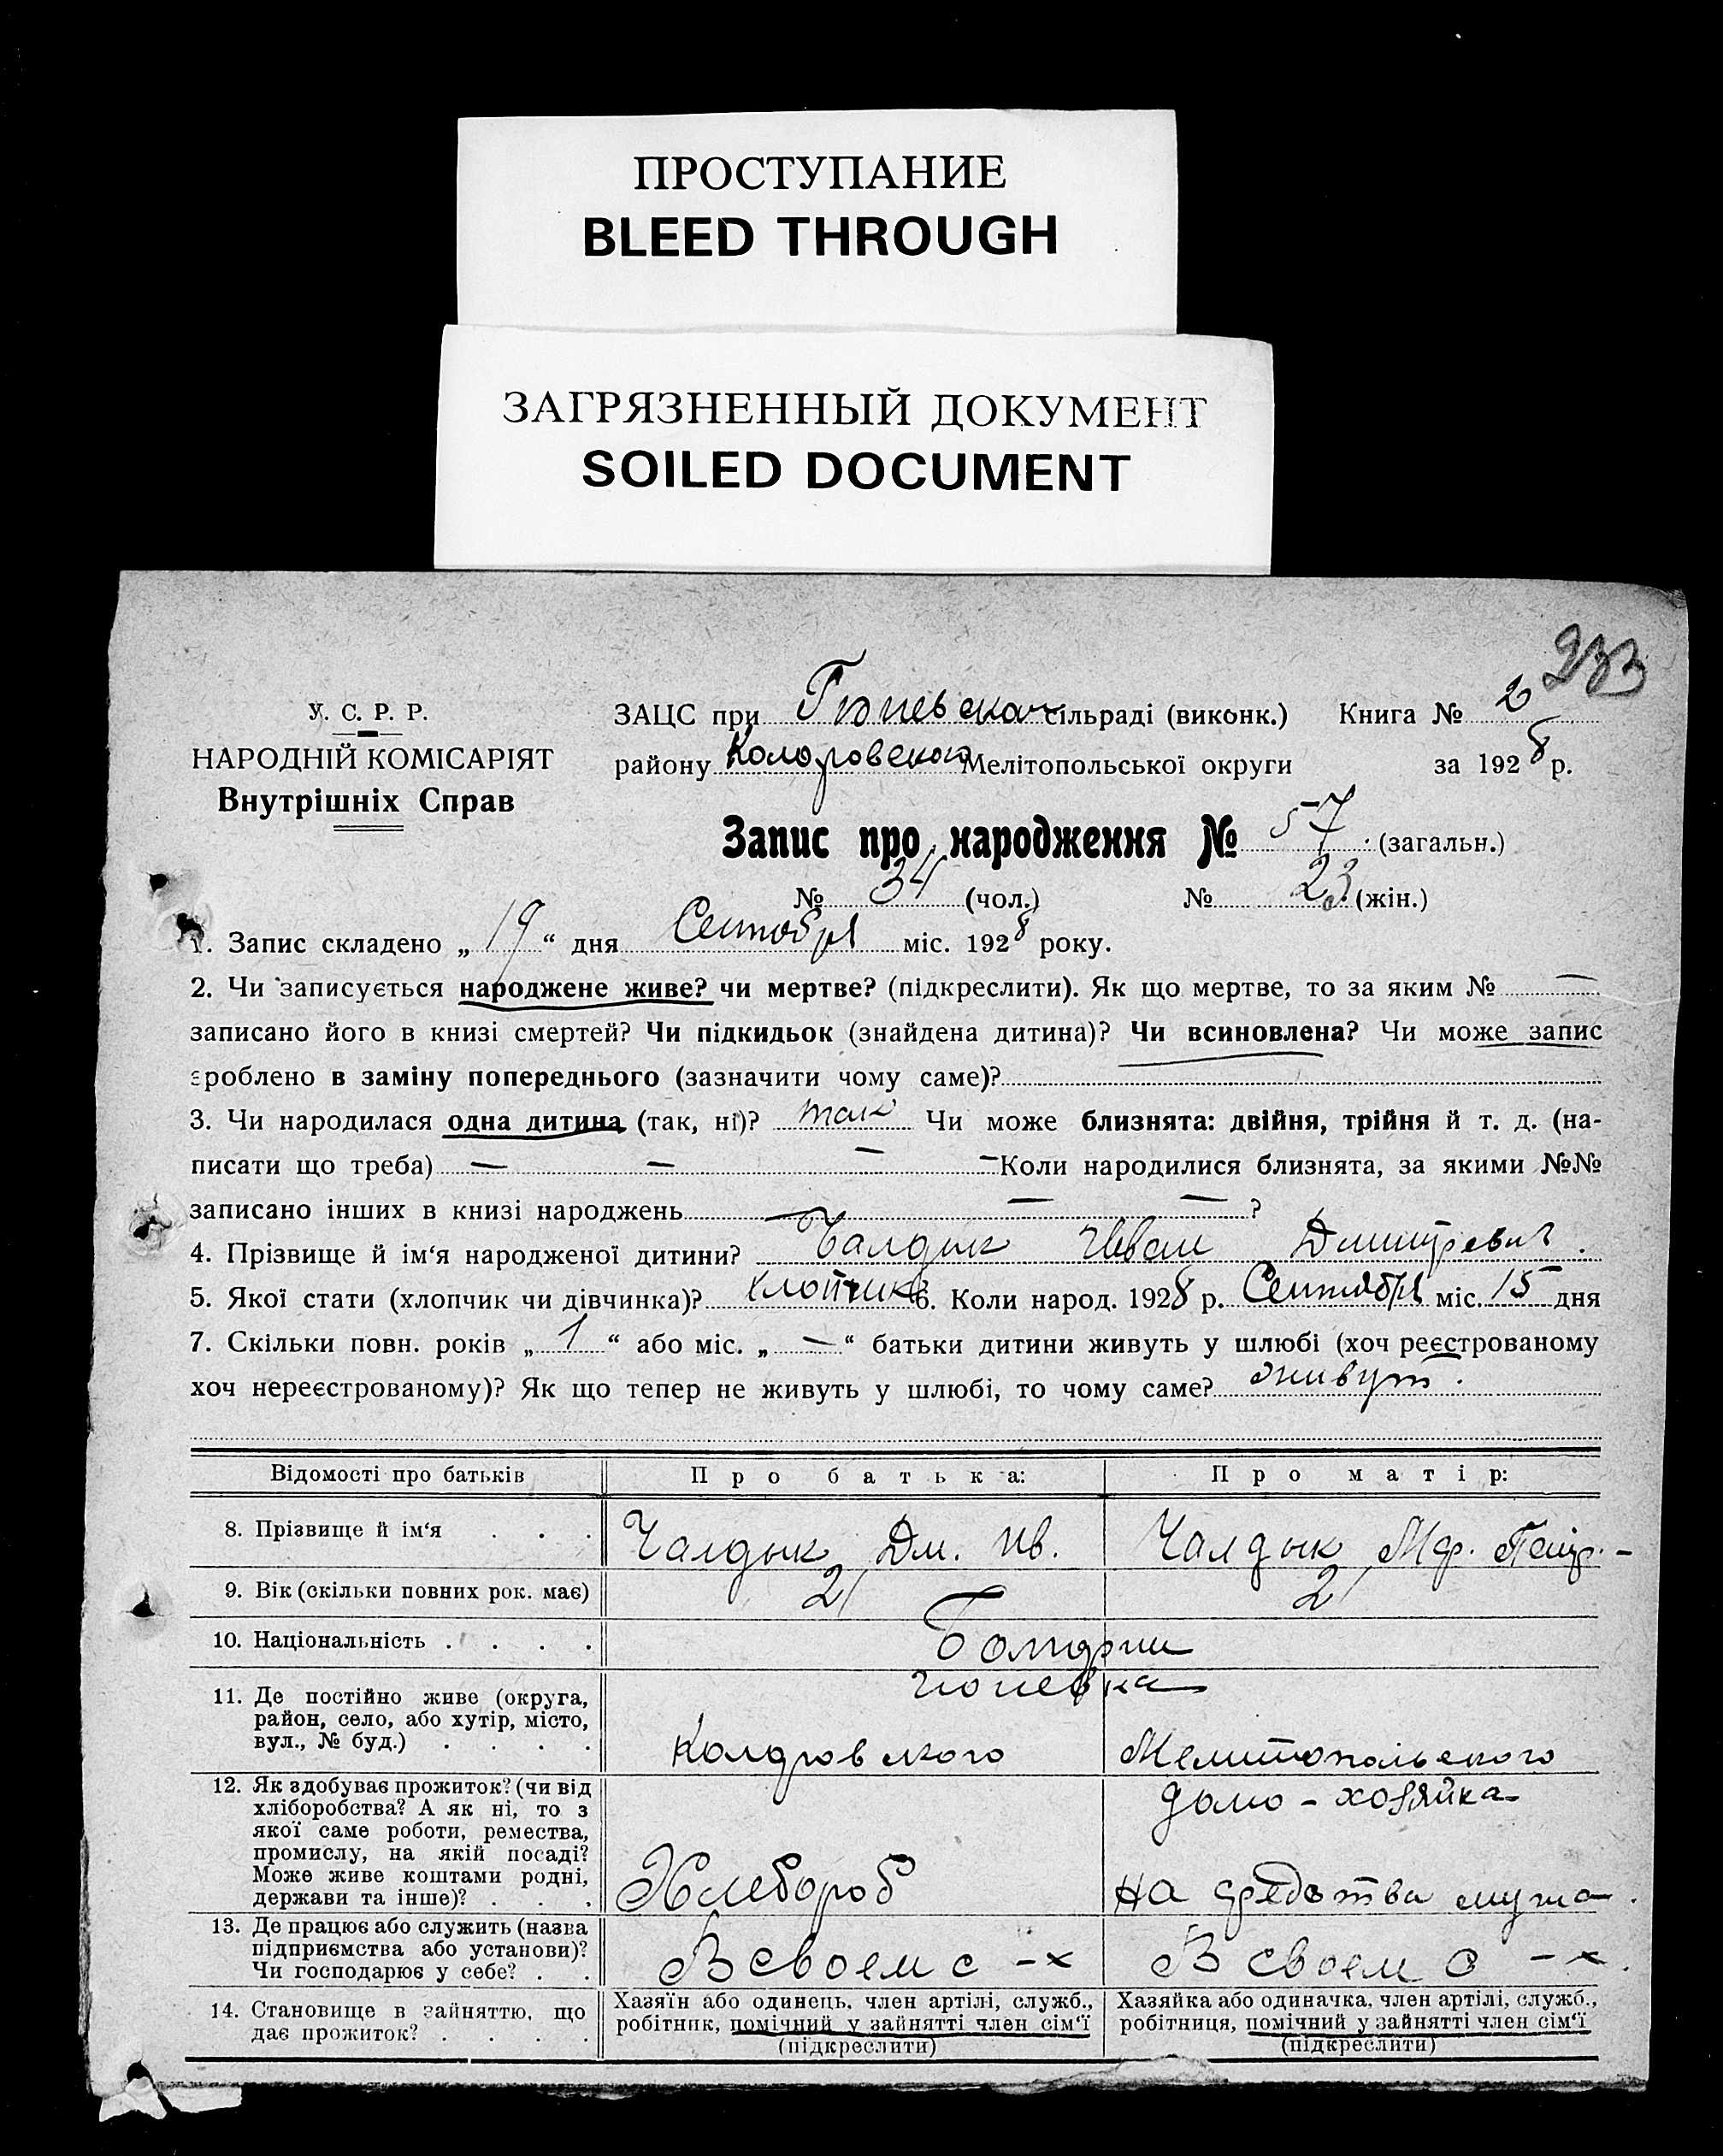 ПРОСТУПАНИЕ
BLEED THROUGH
ЗАГРЯЗНЕННЫЙ ДОКУМЕНТ
SOILED DOCUMENT
233
У. С. Р. Р.
НАРОДНІЙ КОМІСАРІЯТ
Внутрішніх Справ
ЗАЦС при Гюневской сільраді (виконк.) Книга № 2
району Коларовского Мелітопольської округи за 1928 р.
Запис про народження № 57 (загальн.)
№ 34 (чол.) № 23 (жін.)
1. Запис складено „19“ дня Сентября міс. 1928 року.
2. Чи записується народжене живе? чи мертве? (підкреслити). Як що мертве, то за яким № —
записано його в книзі смертей? Чи підкидьок (знайдена дитина)? Чи всиновлена? Чи може запис
зроблено в заміну попереднього (зазначити чому саме)?
3. Чи народилася одна дитина (так, ні)? так Чи може близнята: двійня, трійня й т. д. (на-
писати що треба) — — — — Коли народилися близнята, за якими №№
записано інших в книзі народжень — — — ?
4. Прізвище й ім‘я народженої дитини? Чалдык Иван Дмитревич.
5. Якої стати (хлопчик чи дівчинка)? хлопчик 6. Коли народ. 1928 р. Сентября міс. 15 дня
7. Скільки повн. років „1“ або міс. „—“ батьки дитини живуть у шлюбі (хоч реєстрованому
хоч нереєстрованому)? Як що тепер не живуть у шлюбі, то чому саме? живут.
Відомості про батьків Про батька: Про матір:
8. Прізвище й ім‘я . . . Чалдык Дм. Ив. Чалдык Петр. -
9. Вік (скільки повних рок. має) 21 21
10. Національність . . . . Болгари
11. Де постійно живе (округа,
район, село, або хутір, місто,
вул., № буд.) . . . .
Гюневка
Колоровского Мелитопольского
12. Як здобуває прожиток? (чи від
хліборобства? А як ні, то з
якої саме роботи, ремества,
промислу, на якій посаді?
Може живе коштами родні,
держави та інше)? . . .
Хлебороб
домо-хозяйка
на средства мужа.
13. Де працює або служить (назва
підприємства або установи)?
Чи господарює у себе? . .
В своем с-х В своем с-х.
14. Становище в зайняттю, що
дає прожиток? . . . .
Хазяїн або одинець, член артілі, служб.,
робітник, помічний у зайнятті член сім‘ї
(підкреслити)
Хазяйка або одиначка, член артілі, служб.,
робітниця, помічний у зайнятті член сім‘ї
(підкреслити)